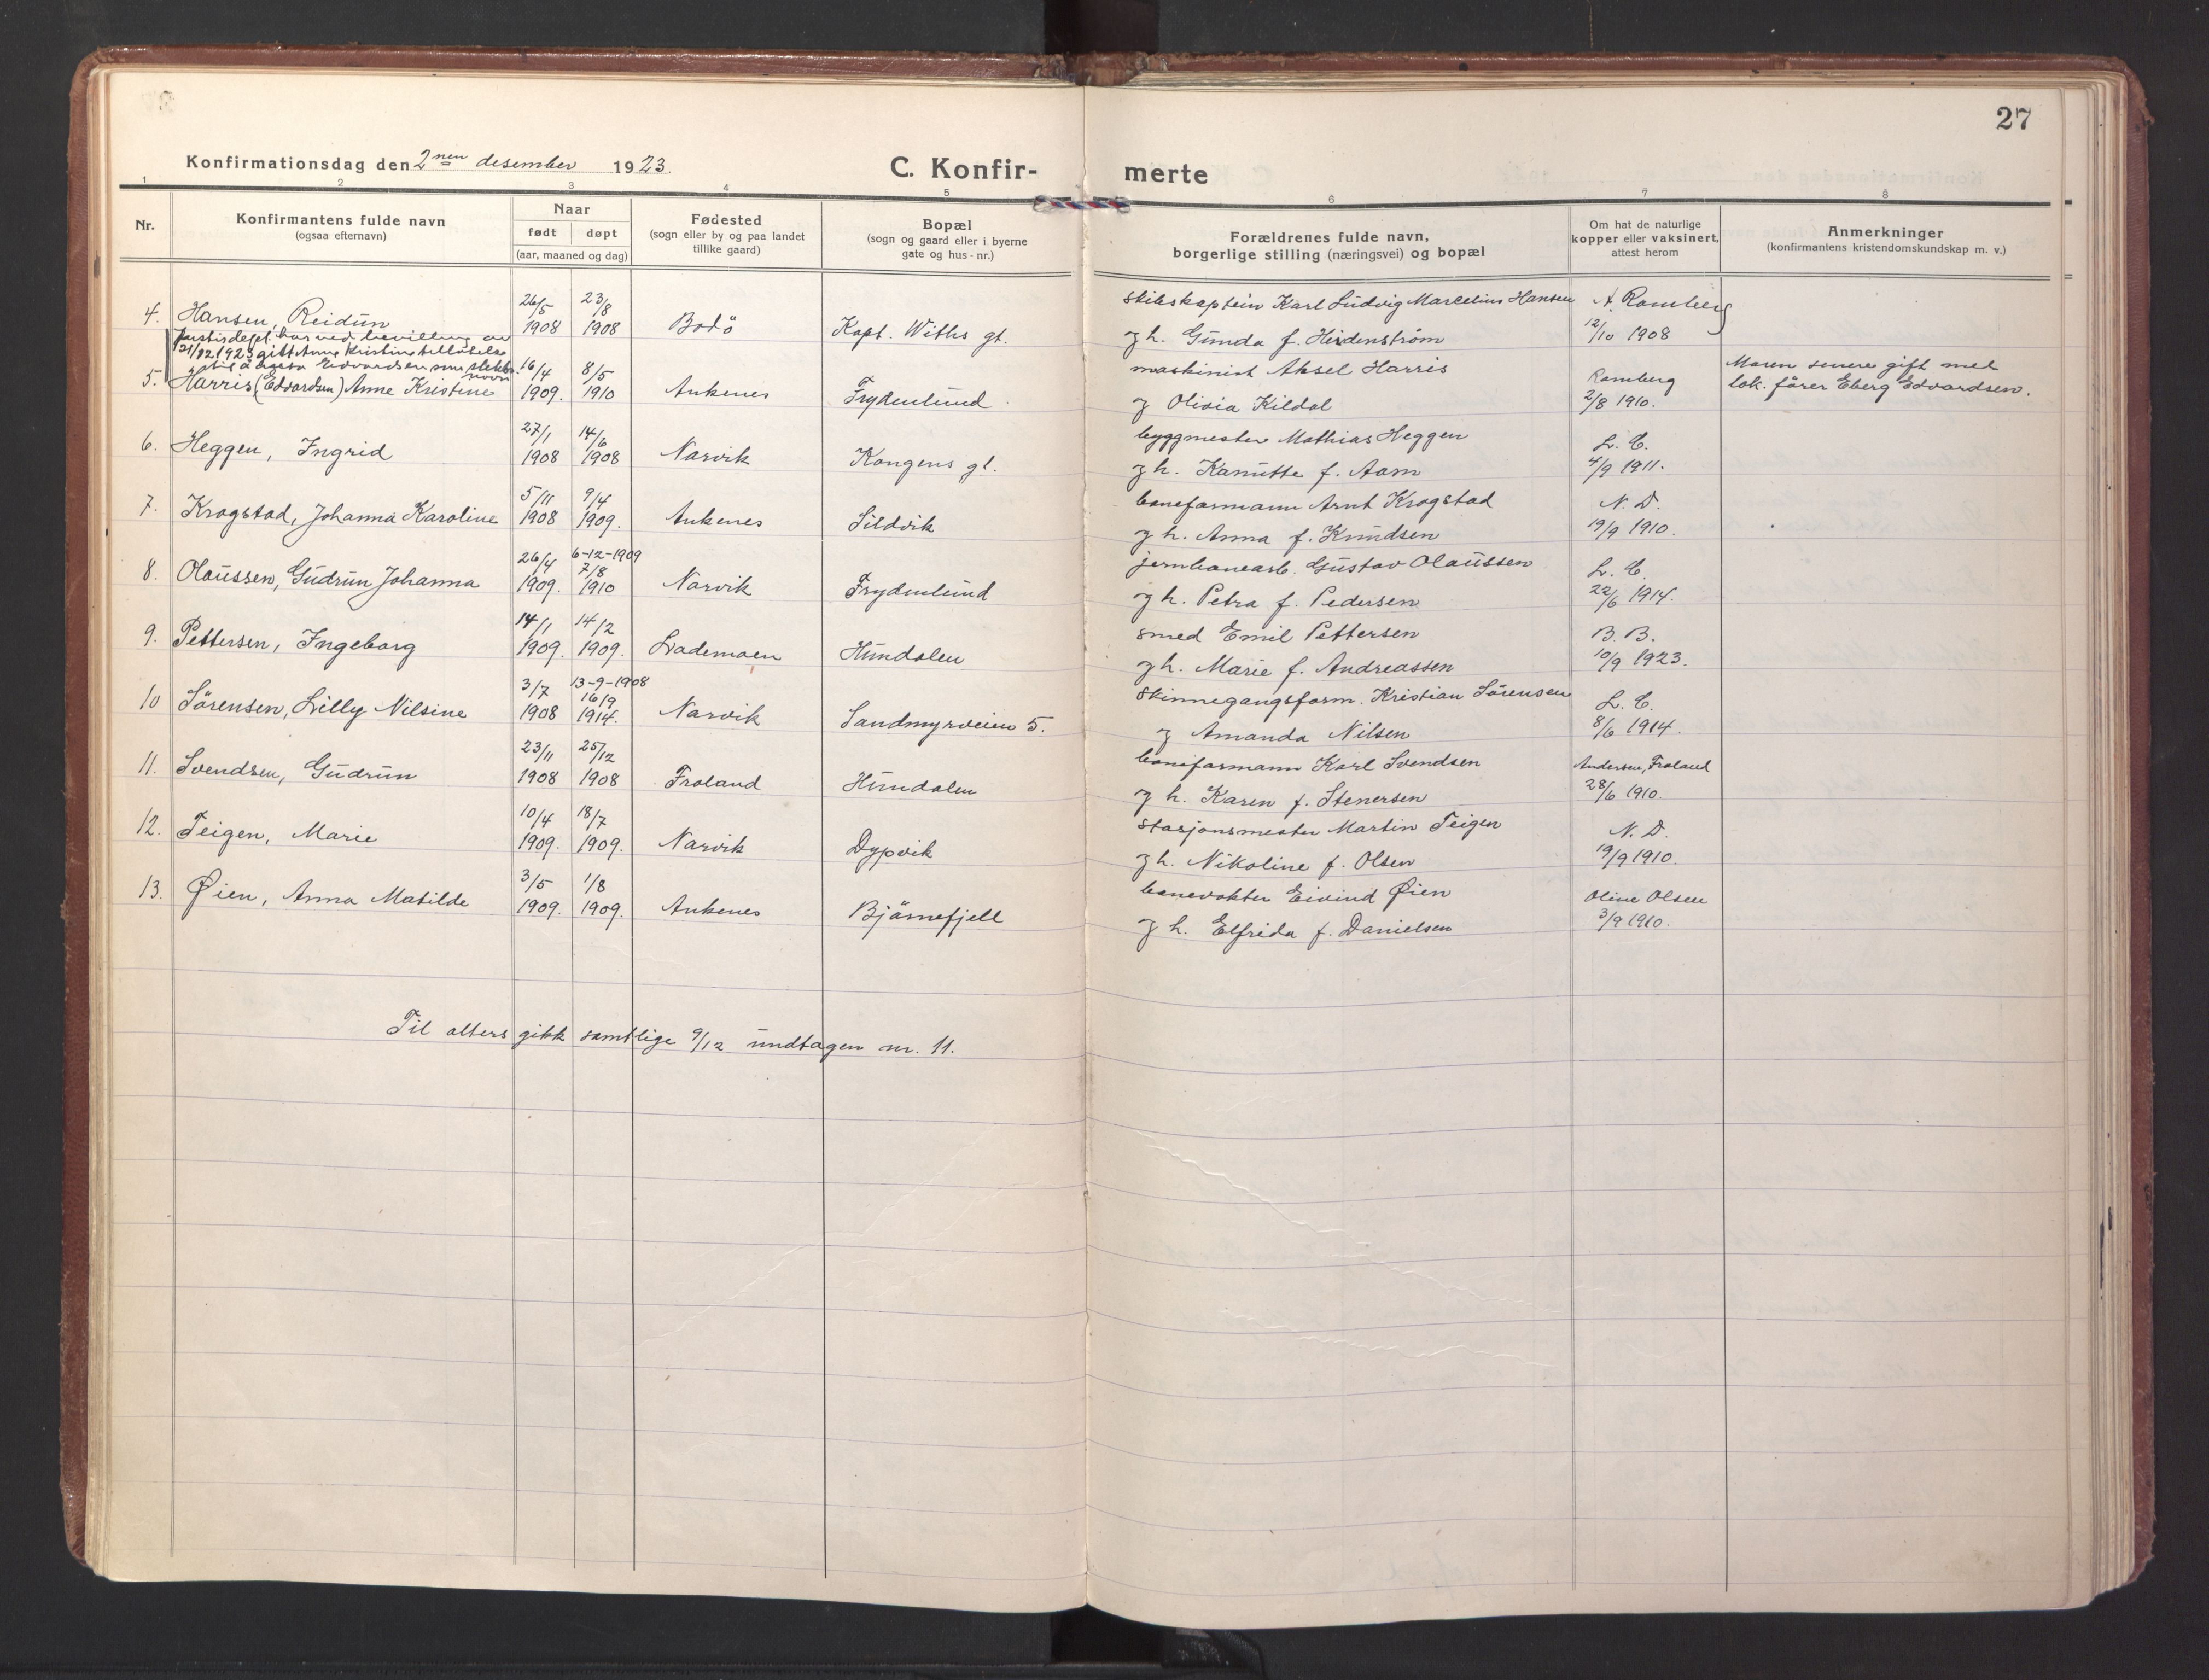 27
Konfirmationsdag den 2nen desember 1923.
C. Konfirmerte
1 2 3 4 5 6 7 8
Nr.
Konfirmantens fulde navn
(ogsaa efternavn)
Naar
født døpt
(aar, maaned og dag)
Fødested
(sogn eller by og paa landet
tillike gaard)
Bopæl
(sogn og gaard eller i byerne
gate og hus-nr.)
Forældrenes fulde navn,
borgerlige stilling (næringsvei) og bopæl
Om hat de naturlige
kopper eller vaksinert,
attest herom
Anmerkninger
(konfirmantens kristendomskundskap m. v.)
26/5 23/8 skibskaptein Karl Ludvig Marcelius Hansen A. Romberg
4. Hansen, Reidun 1908 1908 Bodö Kapt. Withs gt. og h. Gunda f. Heidenström 12/10 1908
Justisdept. har ved bevilling av
21/12 1923 gitt Anne Kristine tillatelse
til å Edvardsen som slekts-
navn
16/4 8/5 maskinist Aksel Harris Romberg Moren senere gift med
5. Harris (Edvardsen) Anne Kristine 1909. 1910 Ankenes Frydenlund. og Olivia Kildal 2/8 1910. lok. förer Eberg Edvardsen.
27/1 14/6 byggmester Mathias Heggen L. C.
6. Heggen, Ingrid 1908 1908 Narvik Kongens gt. og h. Kanutte f. Aam 4/9 1911.
5/11 9/4 baneformann Arnt Krogstad N. D.
7. Krogstad, Johanna Karoline 1908 1909. Ankenes Sildvik og h. Anna f. Knudsen 19/9 1910.
26/4 6-12-1909 7/8 jernbanearb. Gustav Olaussen L. C.
8. Olaussen, Gudrun Johanna 1909. 1910 Narvik Frydenlund og h. Petra f. Pedersen 22/6 1914.
14/1 14/2 smed Emil Pettersen B. B.
9. Pettersen, Ingeborg 1909. 1909. Lademoen Hundalen og h. Marie f. Andreassen 10/9 1923.
3/7 13-9-1908 16/9 skinnegangsform. Kristian Sörensen L. C.
10 Sörensen, Lilly Nilsine 1908 1914. Narvik Sandmyrveien 5. og Amanda Nilsen 8/6 1914.
23/11 25/12 baneformann Karl Svendsen Andersen, Froland
11. Svendsen, Gudrun 1908 1908 Froland Hundalen og h. Karen f. Stenersen 28/6 1910.
10/4 18/7 stasjonsmester Martin Teigen N. D.
12. Teigen, Marie 1909. 1909. Narvik Dypvik og h. Nikoline f. Olsen 19/9 1910.
3/5 1/8 banevokter Eivind Øien Oline Olsen
13. Øien, Anna Matilde 1909. 1909. Ankenes Bjørnefjell og h. Elfrida f. Danielsen 3/9 1910.
Til alters gikk samtlige 9/12 undtagen nr. 11.